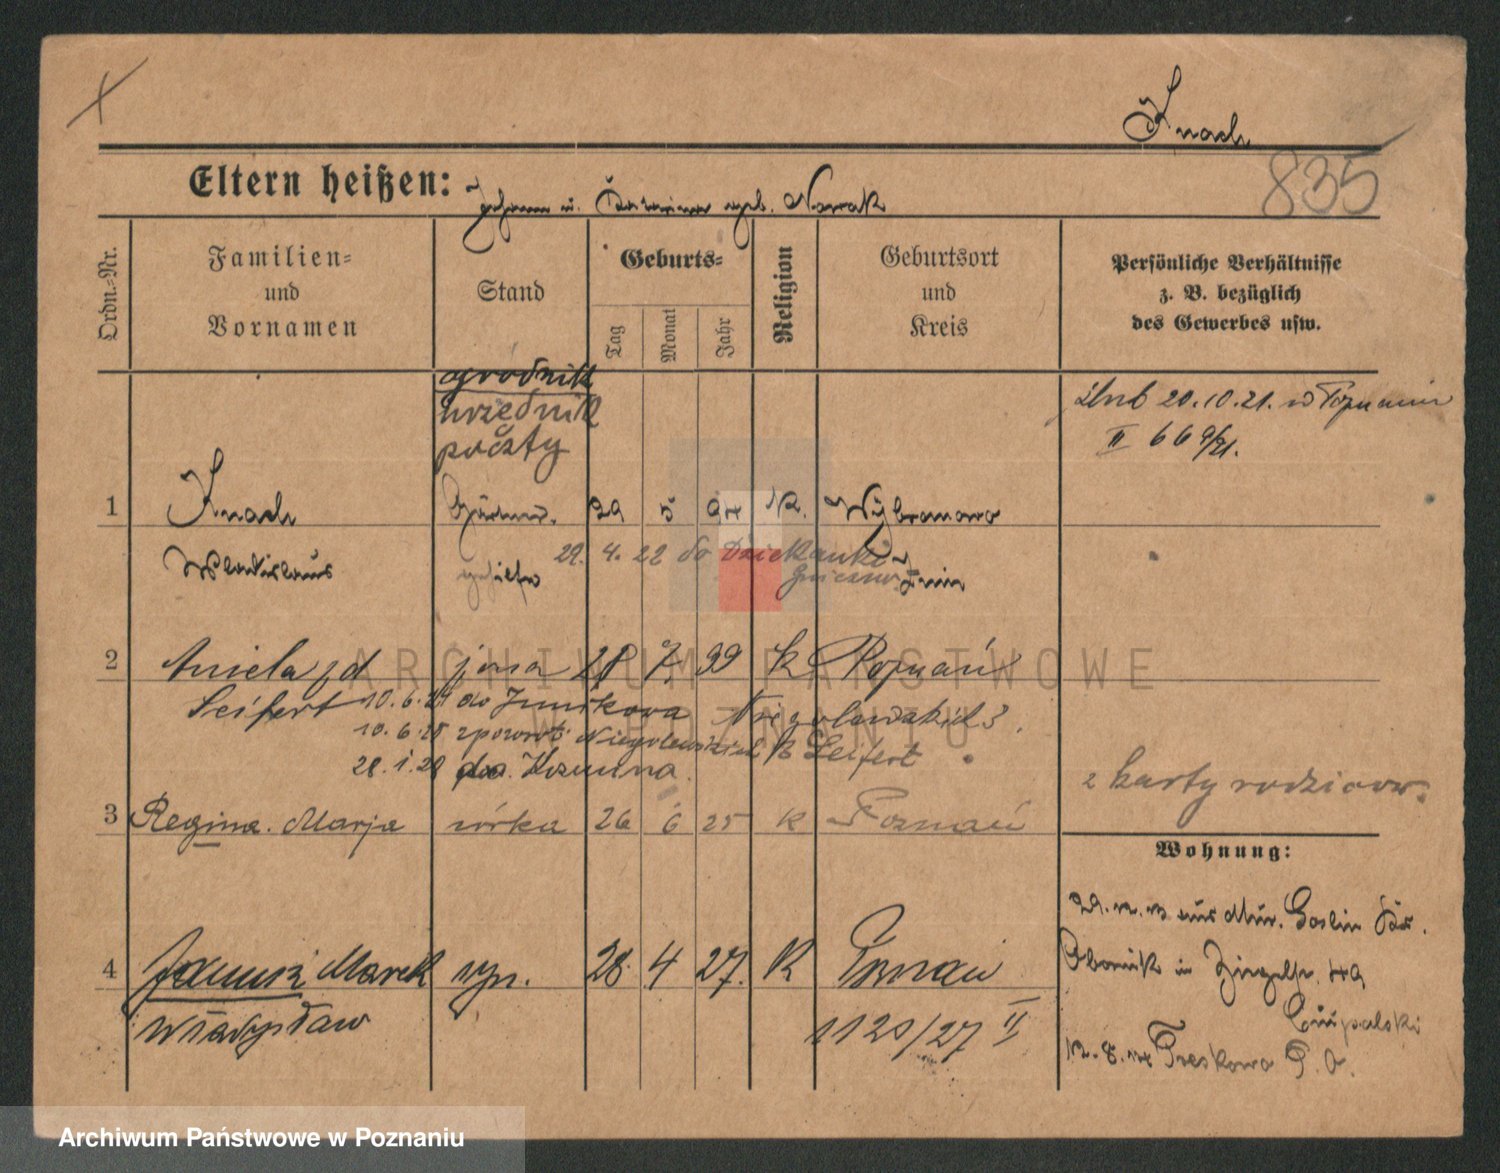 Knach
835
Eltern heißen: Johann u. Katharina geb. Nowak
Ordn.-Nr.
Familien- und Vornamen
Stand
Geburts-
Tag
Monat
Jahr
Religion
Geburtsort und Kreis
Persönliche Verhältnisse
z. B. bezüglich
des Gewerbes usw.
ogrodnik
urzędnik
poczty
ślub 20.10.21. w Poznaniu
II 669/21.
1 Knach Gärtner- 29 5 94 K. Wybranowo
29. 4. 22 do Dziekanki
Gniezno
Wladislaus gehilfe Znin
2 Aniela z d żona 28 7 99 k Poznań
Seifert 10.6.24 do Junikowa Niegolewskich 3.
10.6.25 zpowrot Niegolewskich Seifert
28.1.28 do Kozmina.
2 karty rodzicow.
3 Regina. Marja córka 26 6 25 k Poznań
Wohnung:
29. 12. 13 aus Mur. Goslin Kr.
Obornik in
4 Janusz Marek syn. 28. 4 27. K Poznań
Władysław 1120/27 II
Treskowo P. O.
ARCHIWUM PAŃSTWOWE
W POZNANIU
Archiwum Państwowe w Poznaniu